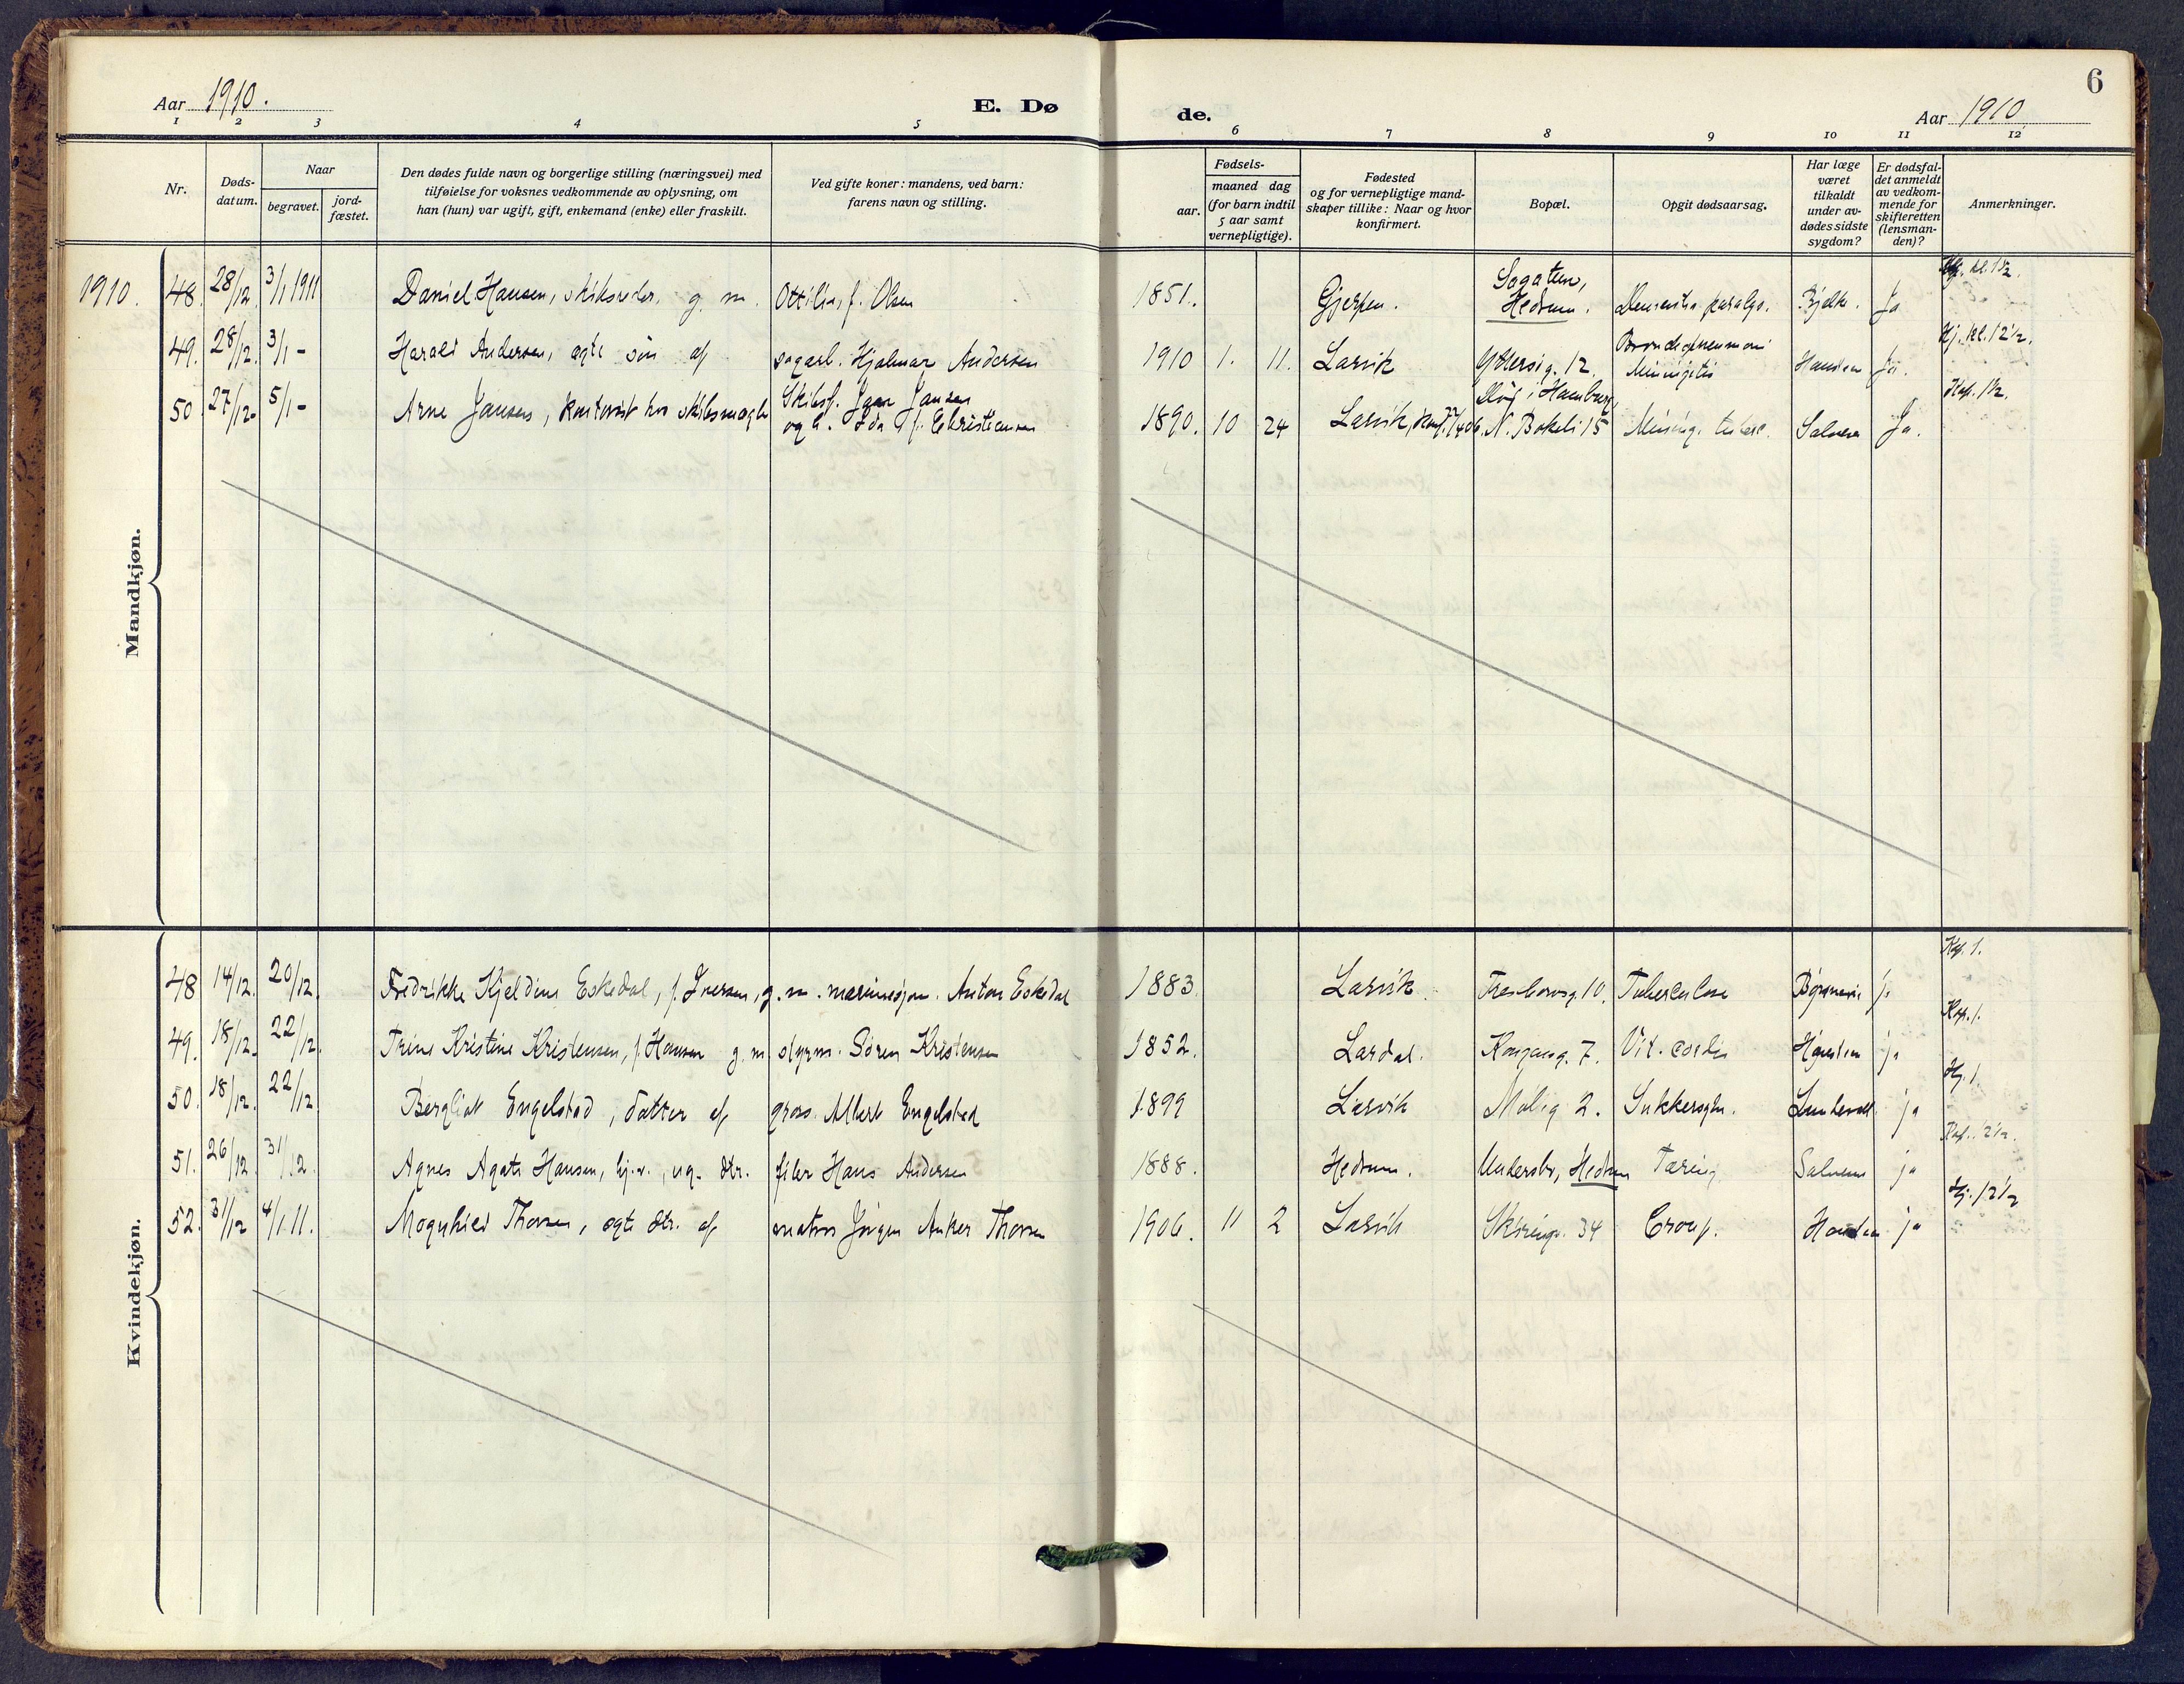 Aar 1910.
E. Dø
de.
Aar 1910
6
1 2 3 4 5 6 7 8 9 10 11 12
Nr.
Døds-
datum.
Naar
begravet.
jord-
fæstet.
Den dødes fulde navn og borgerlige stilling (næringsvei) med
tilføielse for voksnes vedkommende av oplysning, om
han (hun) var ugift, gift, enkemand (enke) eller fraskilt.
Ved gifte koner: mandens, ved barn:
farens navn og stilling.
Fødsels-
aar.
maaned dag
(for barn indtil
5 aar samt
vernepligtige).
Fødested
og for vernepligtige mand-
skaper tillike: Naar og hvor
konfirmert.
Bopæl.
Opgit dødsaarsag.
Har læge
været
tilkaldt
under av-
dødes sidste
sygdom?
Er dødsfal-
det anmeldt
av vedkom-
mende for
skifteretten
(lensman-
den)?
Anmerkninger.
Mandkjøn.
1910. 48. 28/12. 3/1 1911 Daniel Hansen, skibsreder, g. m. Ottilia, f. Olsen 1851. Gjerpen. Hedrum. Dementia paralyt. Bjelke. Ja kl. 1½.
49. 28/12. 3/1 - Harald Andersen, ægte søn af sagarb. Hjalmar Andersen 1910 1. 11. Larvik 12. Bronchopneumoni Meningitis Hansten Ja. Hj. kl. 12½.
50 27/12- 5/1 - Arne Jansen, kontorist hos skibsmægler Skibsf. Jansen og h. Ida f. Christiansen 1890. 10 24 Larvik, konf. Død i Hamburg, N. Bøkeli 15 Mening. tuberc. Salvesen Ja. Kap. 1½.
Kvindekjøn.
48 14/12. 20/12. Fredrikke Kjeldine Eskedal, f. Iversen, g. m. marinesgm. Anton Eskedal 1883. Larvik. 10. Tuberculose ja Kap. 1.
49. 18/12. 22/12. Trine Kristine Kristensen, f. Hansen g. m. styrm. Søren Kristensen 1852. Lardal. Kongeng. 7. Vit. cordis Hansten ja Kap. 1.
50. 18/12. 22/12. Bergliot Engelstad, datter af gros. Albert Engelstad 1899 Larvik 2. Sukkersyke. ja Hj. 1.
51. 26/12 31/12. Agnes Agate Hansen, hj.v., ug. dtr. filer Hans Andersen 1888. Hedrum. Undersbo, Hedrum Tæring Salvesen ja Kap. 12½.
52. 31/12 4/1.11. Magnhild Thorsen, ægte dtr. af matros Jörgen Anker Thorsen 1906. 11 2 Larvik Skiringv. 34 Croup. Hansten ja Hj. 12½